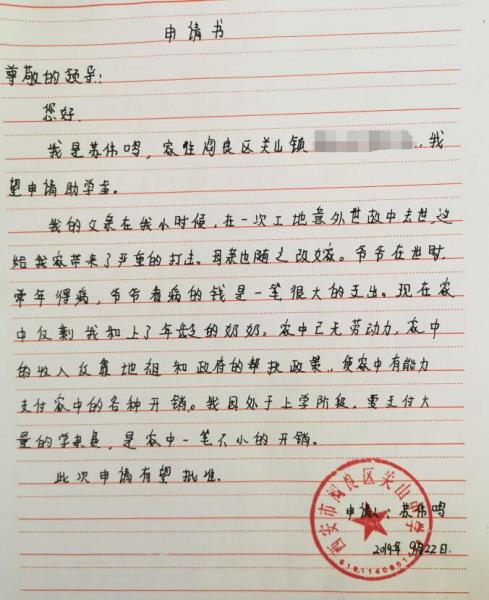 申请书
尊敬的领导:
您好.
我是苏伟鸣,家住阎良区关山镇,我
望申请助学金。
我的父亲在我小时候,在一次工地意外世故中去世,这
给我家带来了严重的打击。母亲也随之改嫁。爷爷在世时,
常年得病,爷爷看病的钱是一笔很大的支出。现在家
中仅剩我和上了年龄的奶奶。家中已无劳动力,家中
的收入仅靠地租和政府的帮扶政策,使家中有能力
支付家中的各种开销。我因处于上学阶段,需支付大
量的学杂费,是家中一笔不小的开销。
此次申请有望批准。
西安市阎良区关山中学
申请人:苏伟鸣
2019年9月22日.